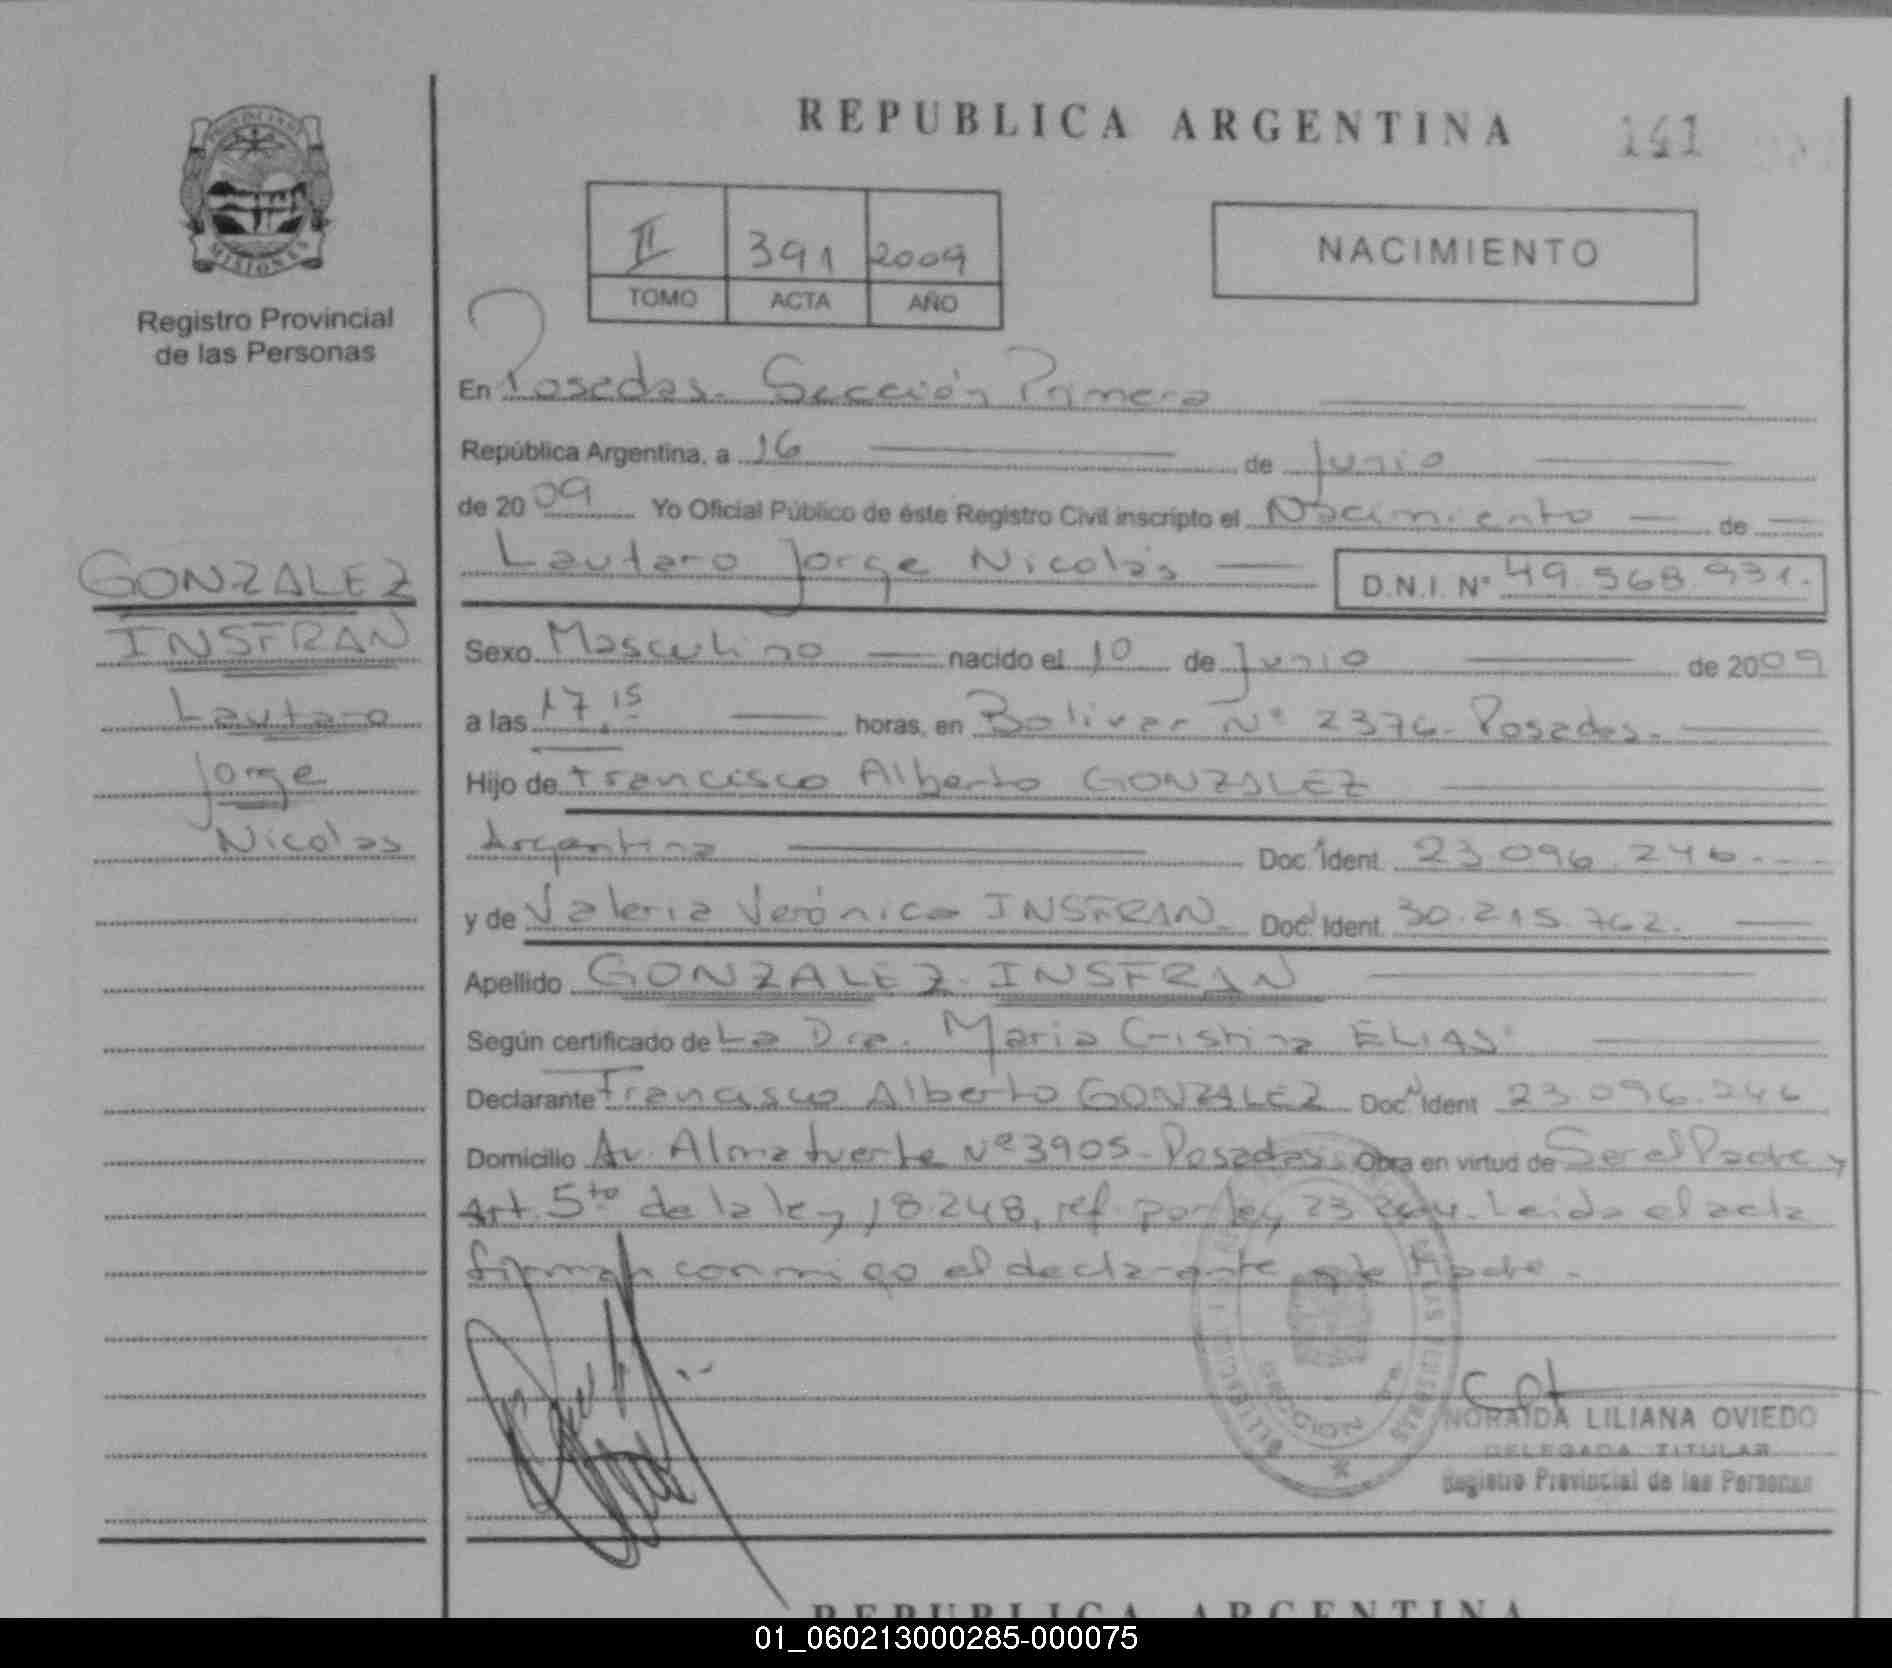 REPUBLICA ARGENTINA
141
PROVINCIA
MISIONES
Registro Provincial
de las Personas
II 391 2009
TOMO ACTA AÑO
NACIMIENTO
En Posadas. Sección Primera
República Argentina, a 16 de Junio
de 2009 Yo Oficial Público de éste Registro Civil inscripto el Nacimiento de
Lautaro Jorge Nicolás D.N.I. N° 49.568.931.
GONZALEZ
INSFRAN
Lautaro
Jorge
Nicolas
Sexo Masculino nacido el 10 de Junio de 2009
a las 17.15 horas, en Bolivar N° 2376. Posadas.
Hijo de Francisco Alberto GONZALEZ
Argentina Doc. Ident. 23.096.246.
y de Valeria Verónica INSFRAN Doc. Ident. 30.215.762.
Apellido GONZALEZ INSFRAN
Según certificado de La Dra. Maria Cristina ELIAS
Declarante Francisco Alberto GONZALEZ Doc. Ident 23.096.246
Domicilio Av. Almafuerte N° 3905. Posadas. Obra en virtud de Ser el Padre y
Art. 5to de la ley 18.248, ref. por ley 23.264. Leida el acta
firman conmigo el declarante
NORAIDA LILIANA OVIEDO
DELEGADA TITULAR
Registro Provincial de las Personas
REPUBLICA ARGENTINA
01_060213000285-000075